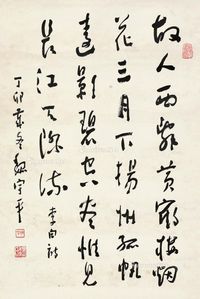 故人西辭黃鶴樓烟
花三月下揚州孤帆
遠影碧空盡惟見
長江天際流 李白詩
丁卯歲冬魏宇平